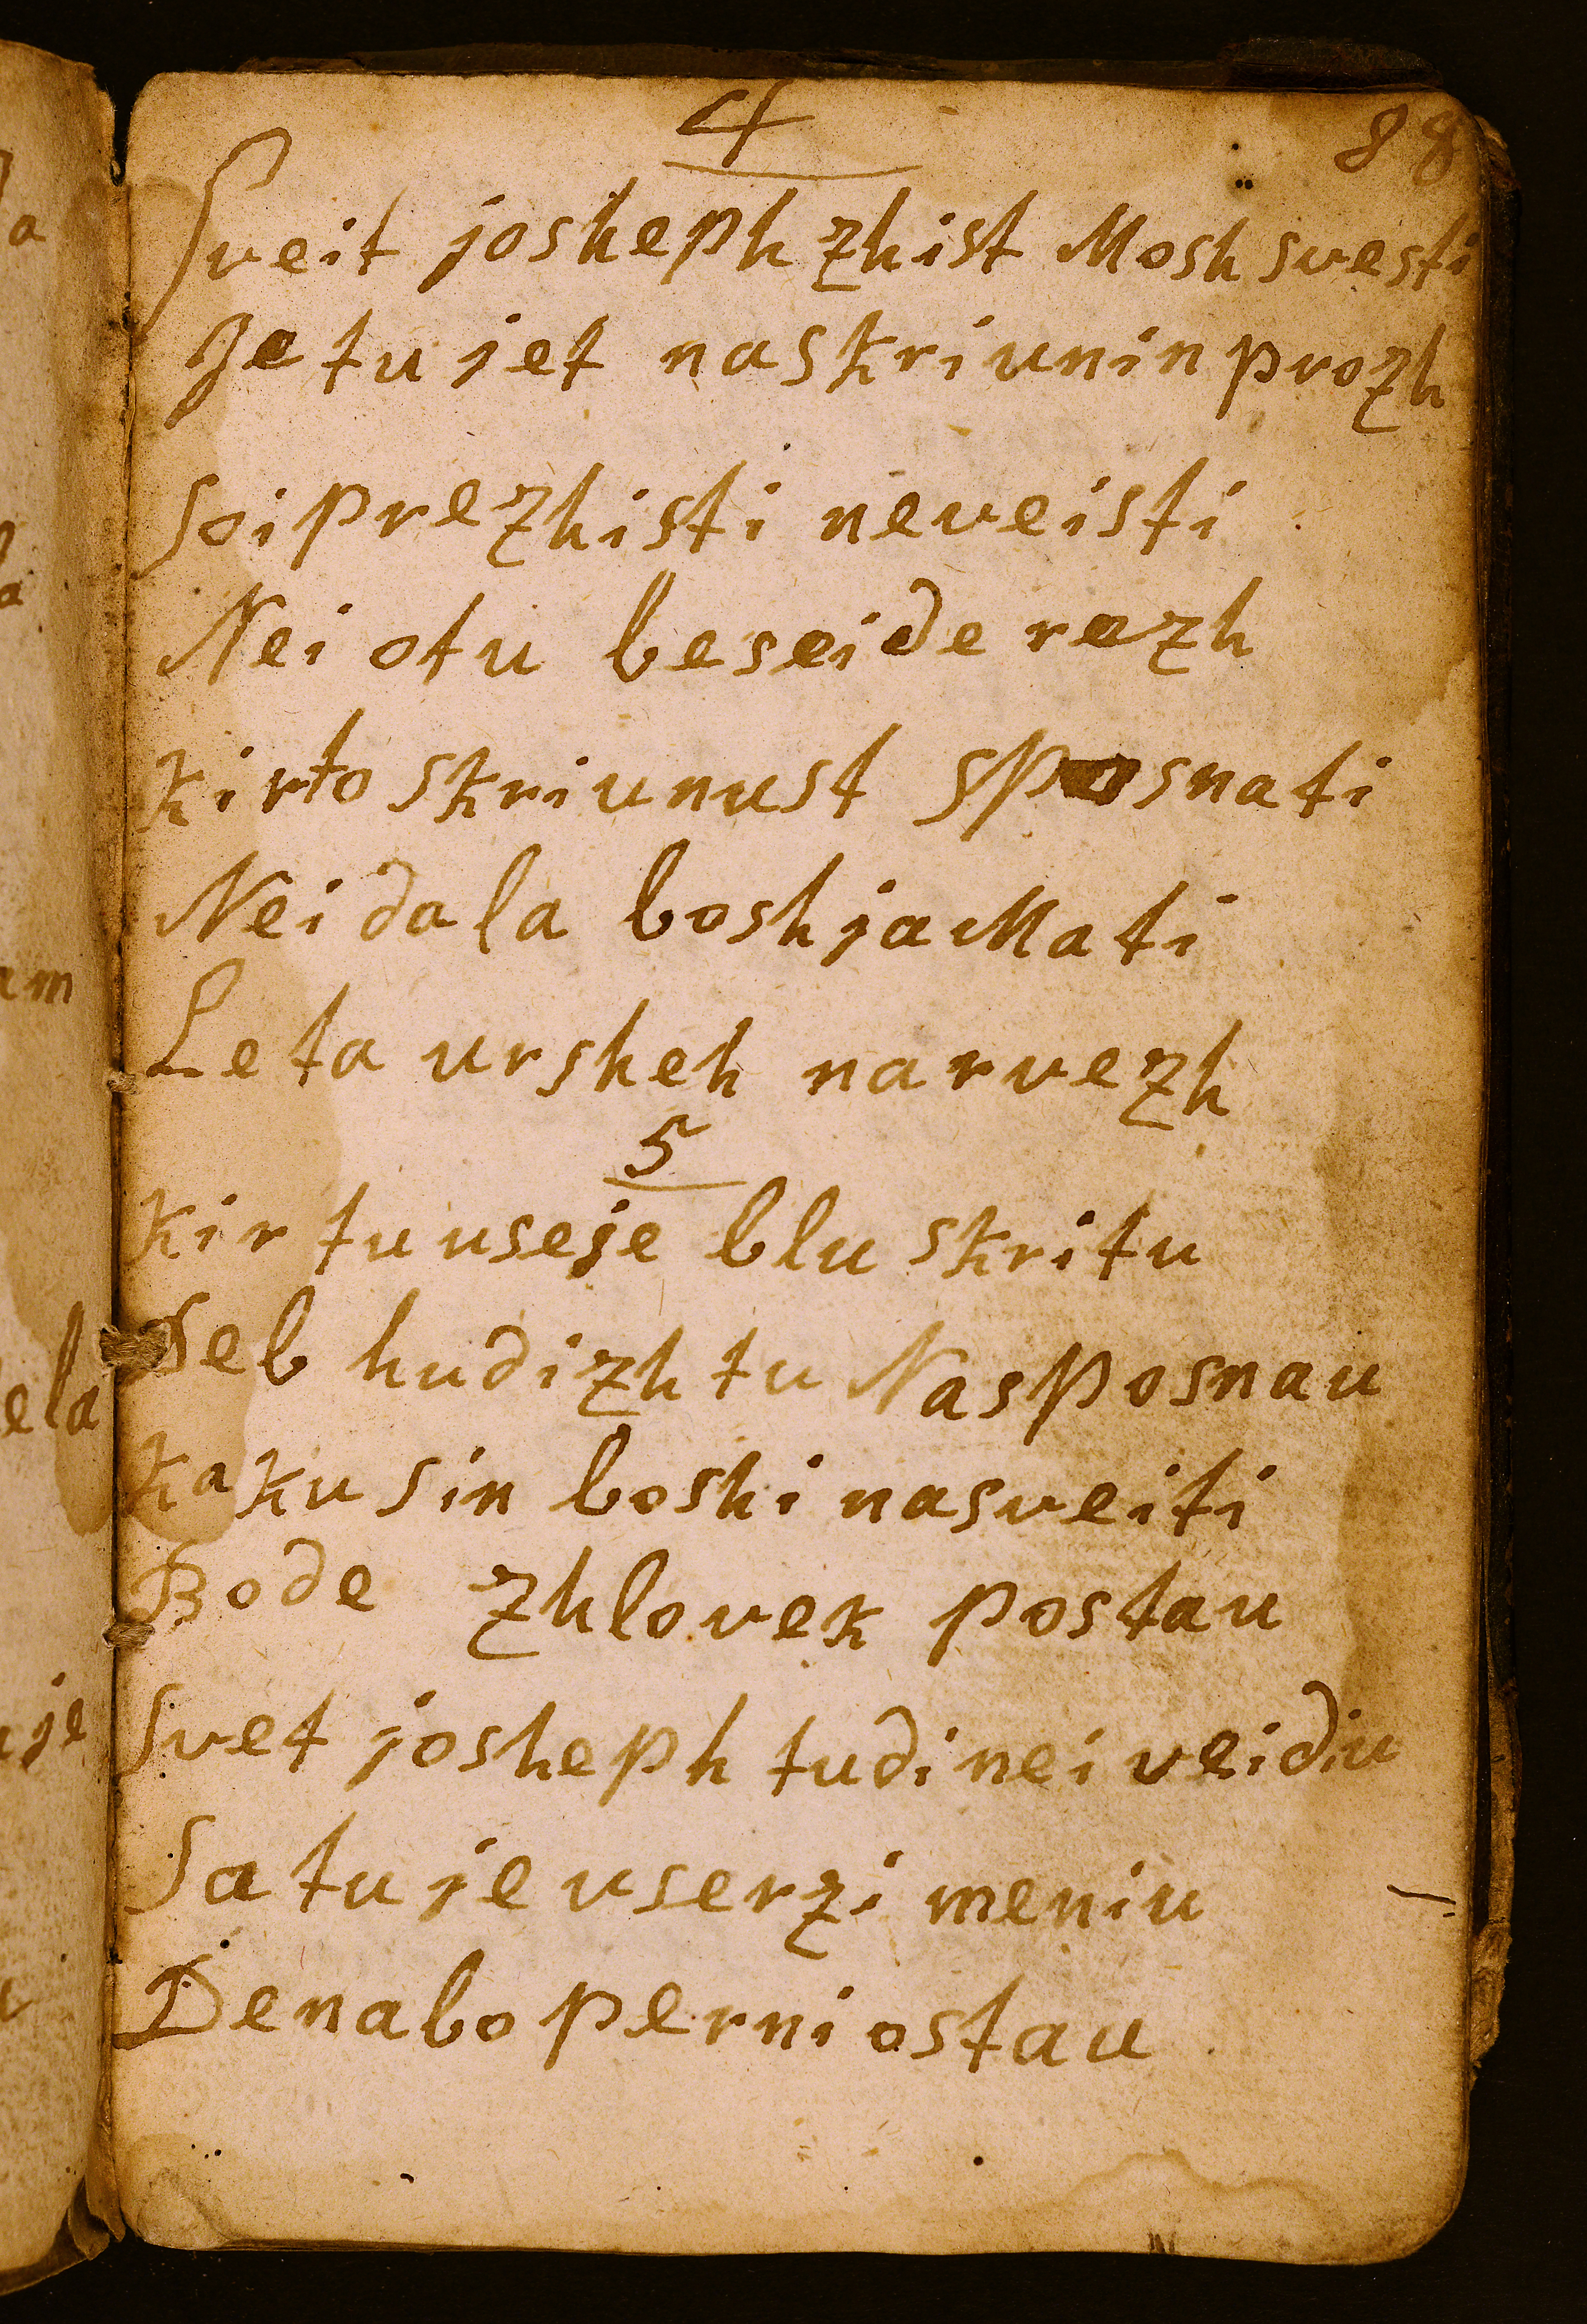 4
88
Sveit josheph zhist Mosh svesti
Je tu jet naskriunin prozh
Soi prezhisti neveisti
Nei otu beseide rezh
kirto skriunust sposnati
Nei dala boshja Mati
Leta ursheh narvezh
5
kir tu useje blu skritu
Seb hudizh tu Nasposnau
kaku sin boshi nasveiti
Bode zhlovek postau
Svet josheph tudi nei veidiu
Satu je userzi meniu
Denabo perni ostau